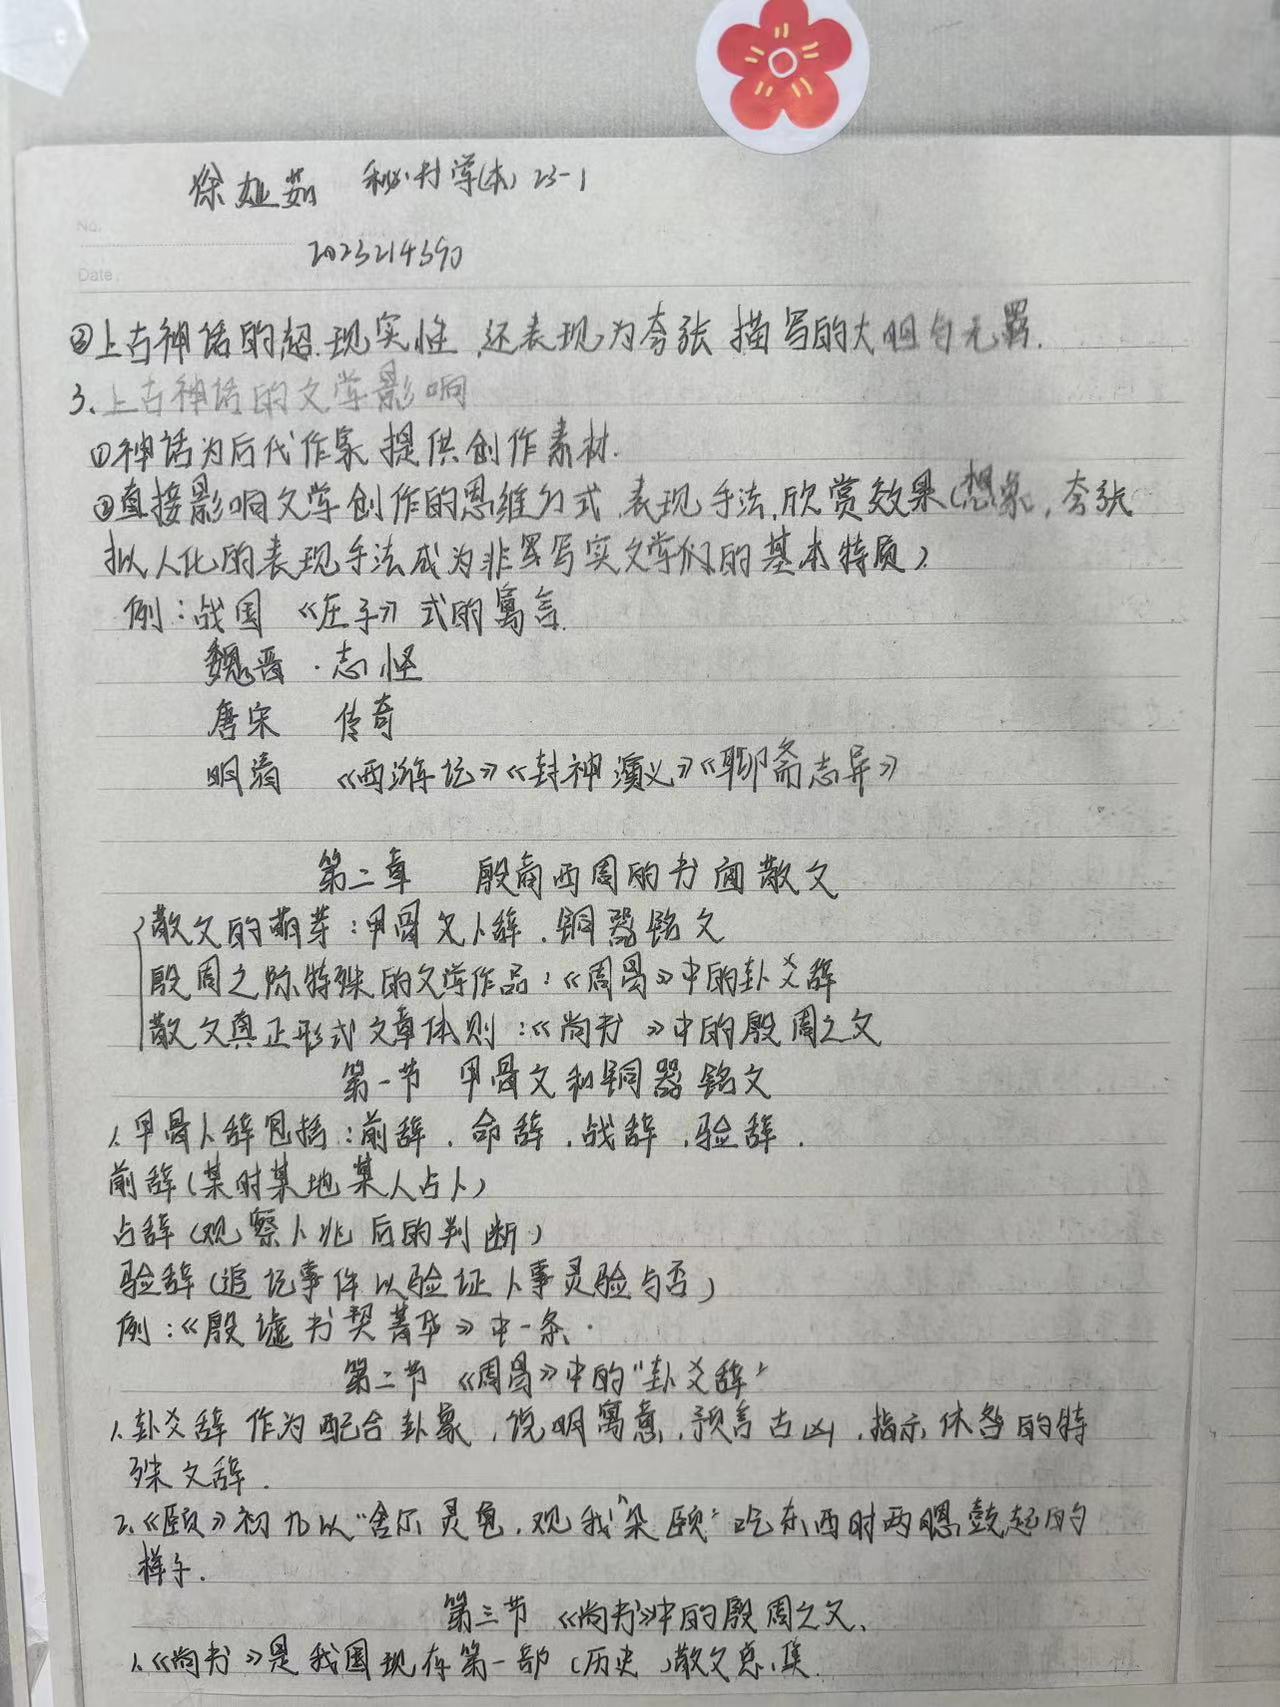 徐娅茹 秘书学(本) 23-1
No.
2023214390
Date.
②上古神话的超现实性,还表现为夸张描写的大胆与无羁.
3、上古神话的文学影响
①神话为后代作家提供创作素材.
②直接影响文学创作的思维方式,表现手法,欣赏效果(想象,夸张
拟人化的表现手法成为非写实文学们的基本特质)
例:战国 《庄子》式的寓言.
魏晋·志怪
唐宋 传奇
明清 《西游记》《封神演义》《聊斋志异》
第二章 殷商西周的书面散文
散文的萌芽:甲骨文卜辞.铜器铭文
殷周之际特殊的文学作品:《周易》中的卦爻辞
散文真正形式文章体则:《尚书》中的殷周之文
第一节 甲骨文和铜器铭文
1.甲骨卜辞包括:前辞.命辞.战辞.验辞.
前辞(某时某地某人占卜)
占辞(观察卜兆后的判断)
验辞(追记事件以验证卜事灵验与否)
例:《殷墟书契菁华》中一条.
第二节 《周易》中的"卦爻辞"
1.卦爻辞作为配合卦象,说明寓意,预言吉凶,指示休咎的特
殊文辞.
2.《颐》初九以"舍尔灵龟,观我"朵颐"吃东西时两腮鼓起的
样子.
第三节 《尚书》中的殷周之文、
1.《尚书》是我国现存第一部(历史)散文总集.